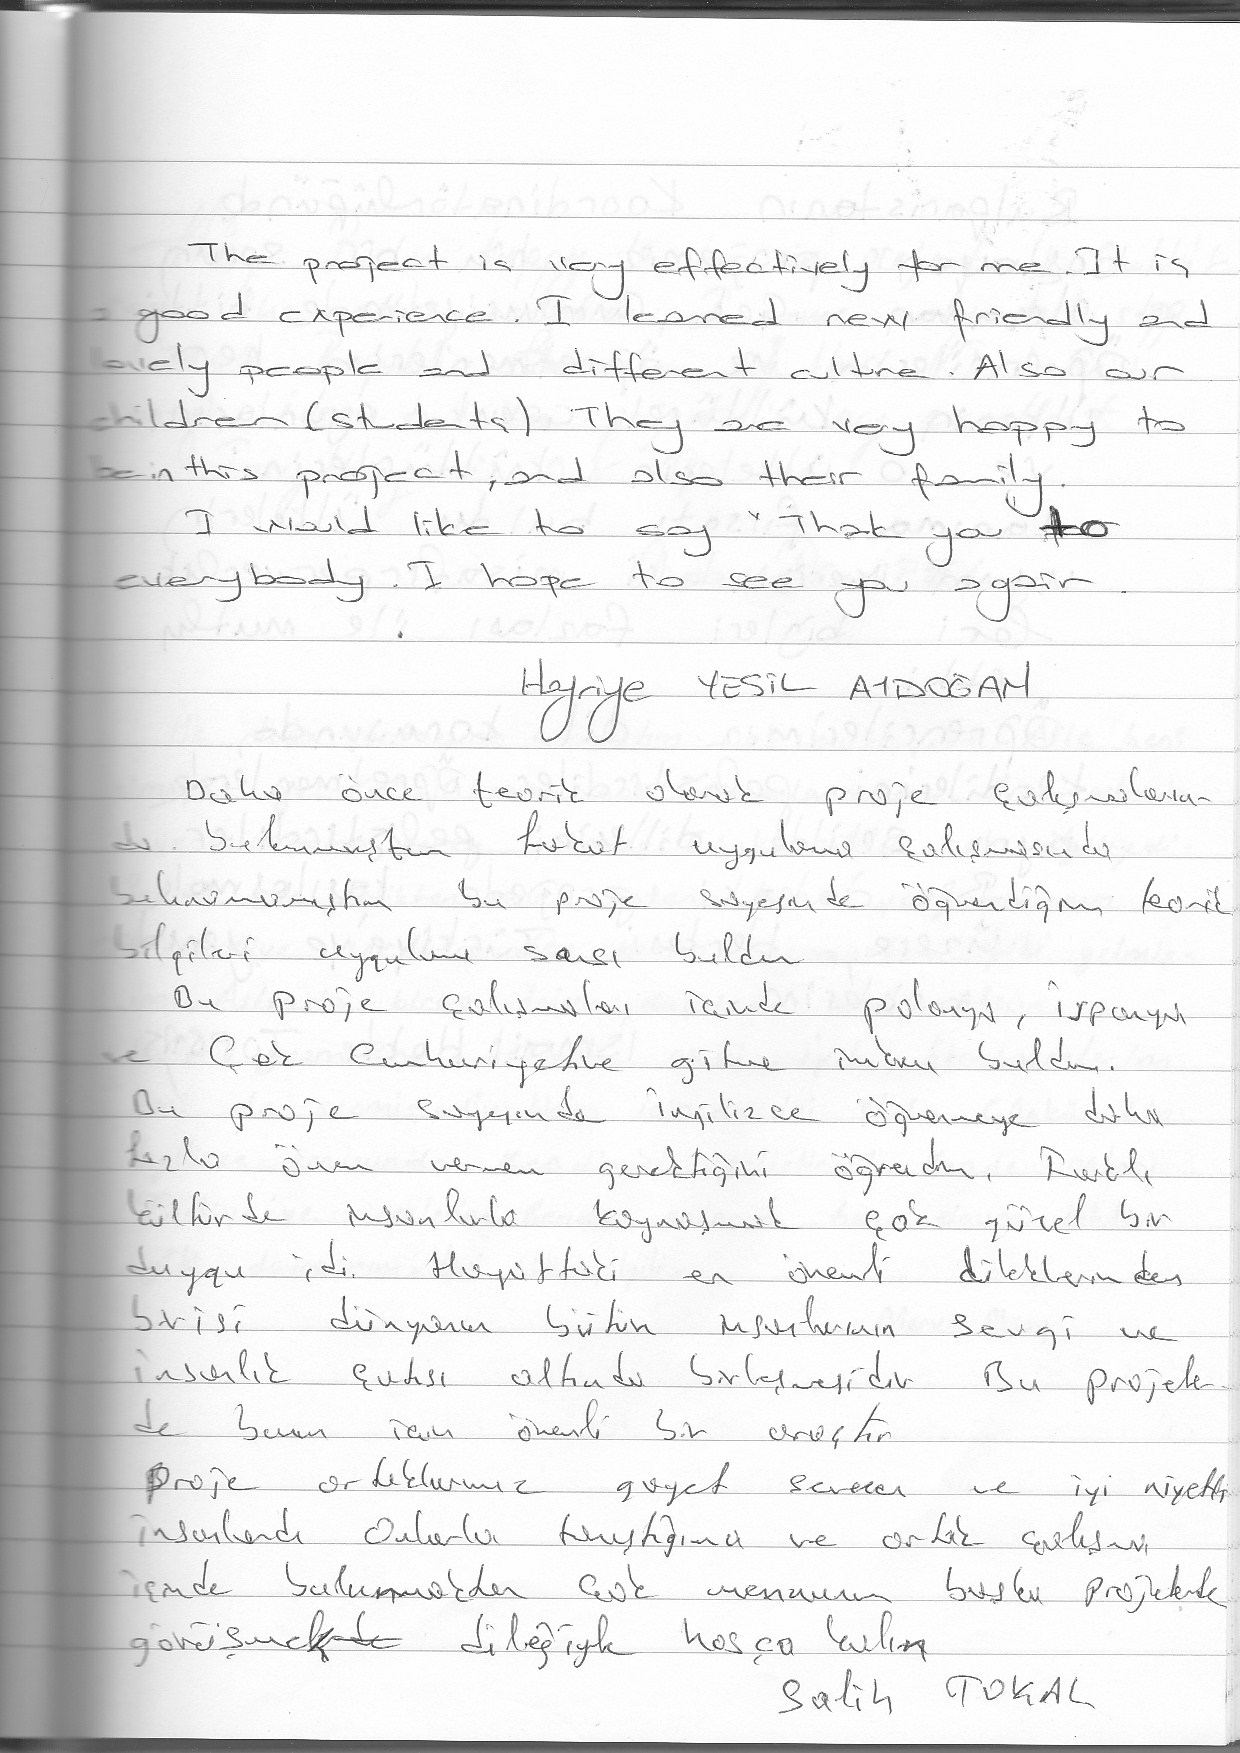 The project is very effectively for me. It is
a good experience. I learned new friendly and
lovely people and different culture. Also our
children (students) They are very happy to
be in this project, and also their family.
I would like to say "Thank you to
everybody. I hope to see you again.
Hayriye YEŞİL AYDOĞAN
Daha önce teorik olarak proje çalışmaların-
da bulunmuştum fakat uygulama çalışmasında
bulunmamıştım bu proje sayesinde öğrendiğim teorik
bilgileri uygulama şansı buldum
Bu proje çalışmaları içinde polonya, ispanya
ve Çek Cumhuriyetine gitme imkanı buldum.
Bu proje sayesinde ingilizce öğrenmeye daha
fazla önem vermem gerektiğini öğrendim. Farklı
kültürde insanlarla kaynaşmak çok güzel bir
duygu idi. Hayattaki en önemli dileklerimden
birisi dünyanın bütün insanlarının sevgi ve
insanlık çatısı altında birleşmesidir Bu projeler
de bunun için önemli bir araçtır
Proje ortaklarımız gayet sevecen ve iyi niyetli
insanlardı Onlarla tanıştığıma ve ortak çalışma
içinde bulunmaktan çok memnunum başka projelerde
görüşmek dileğiyle hoşça kalın
Salih TOKAL